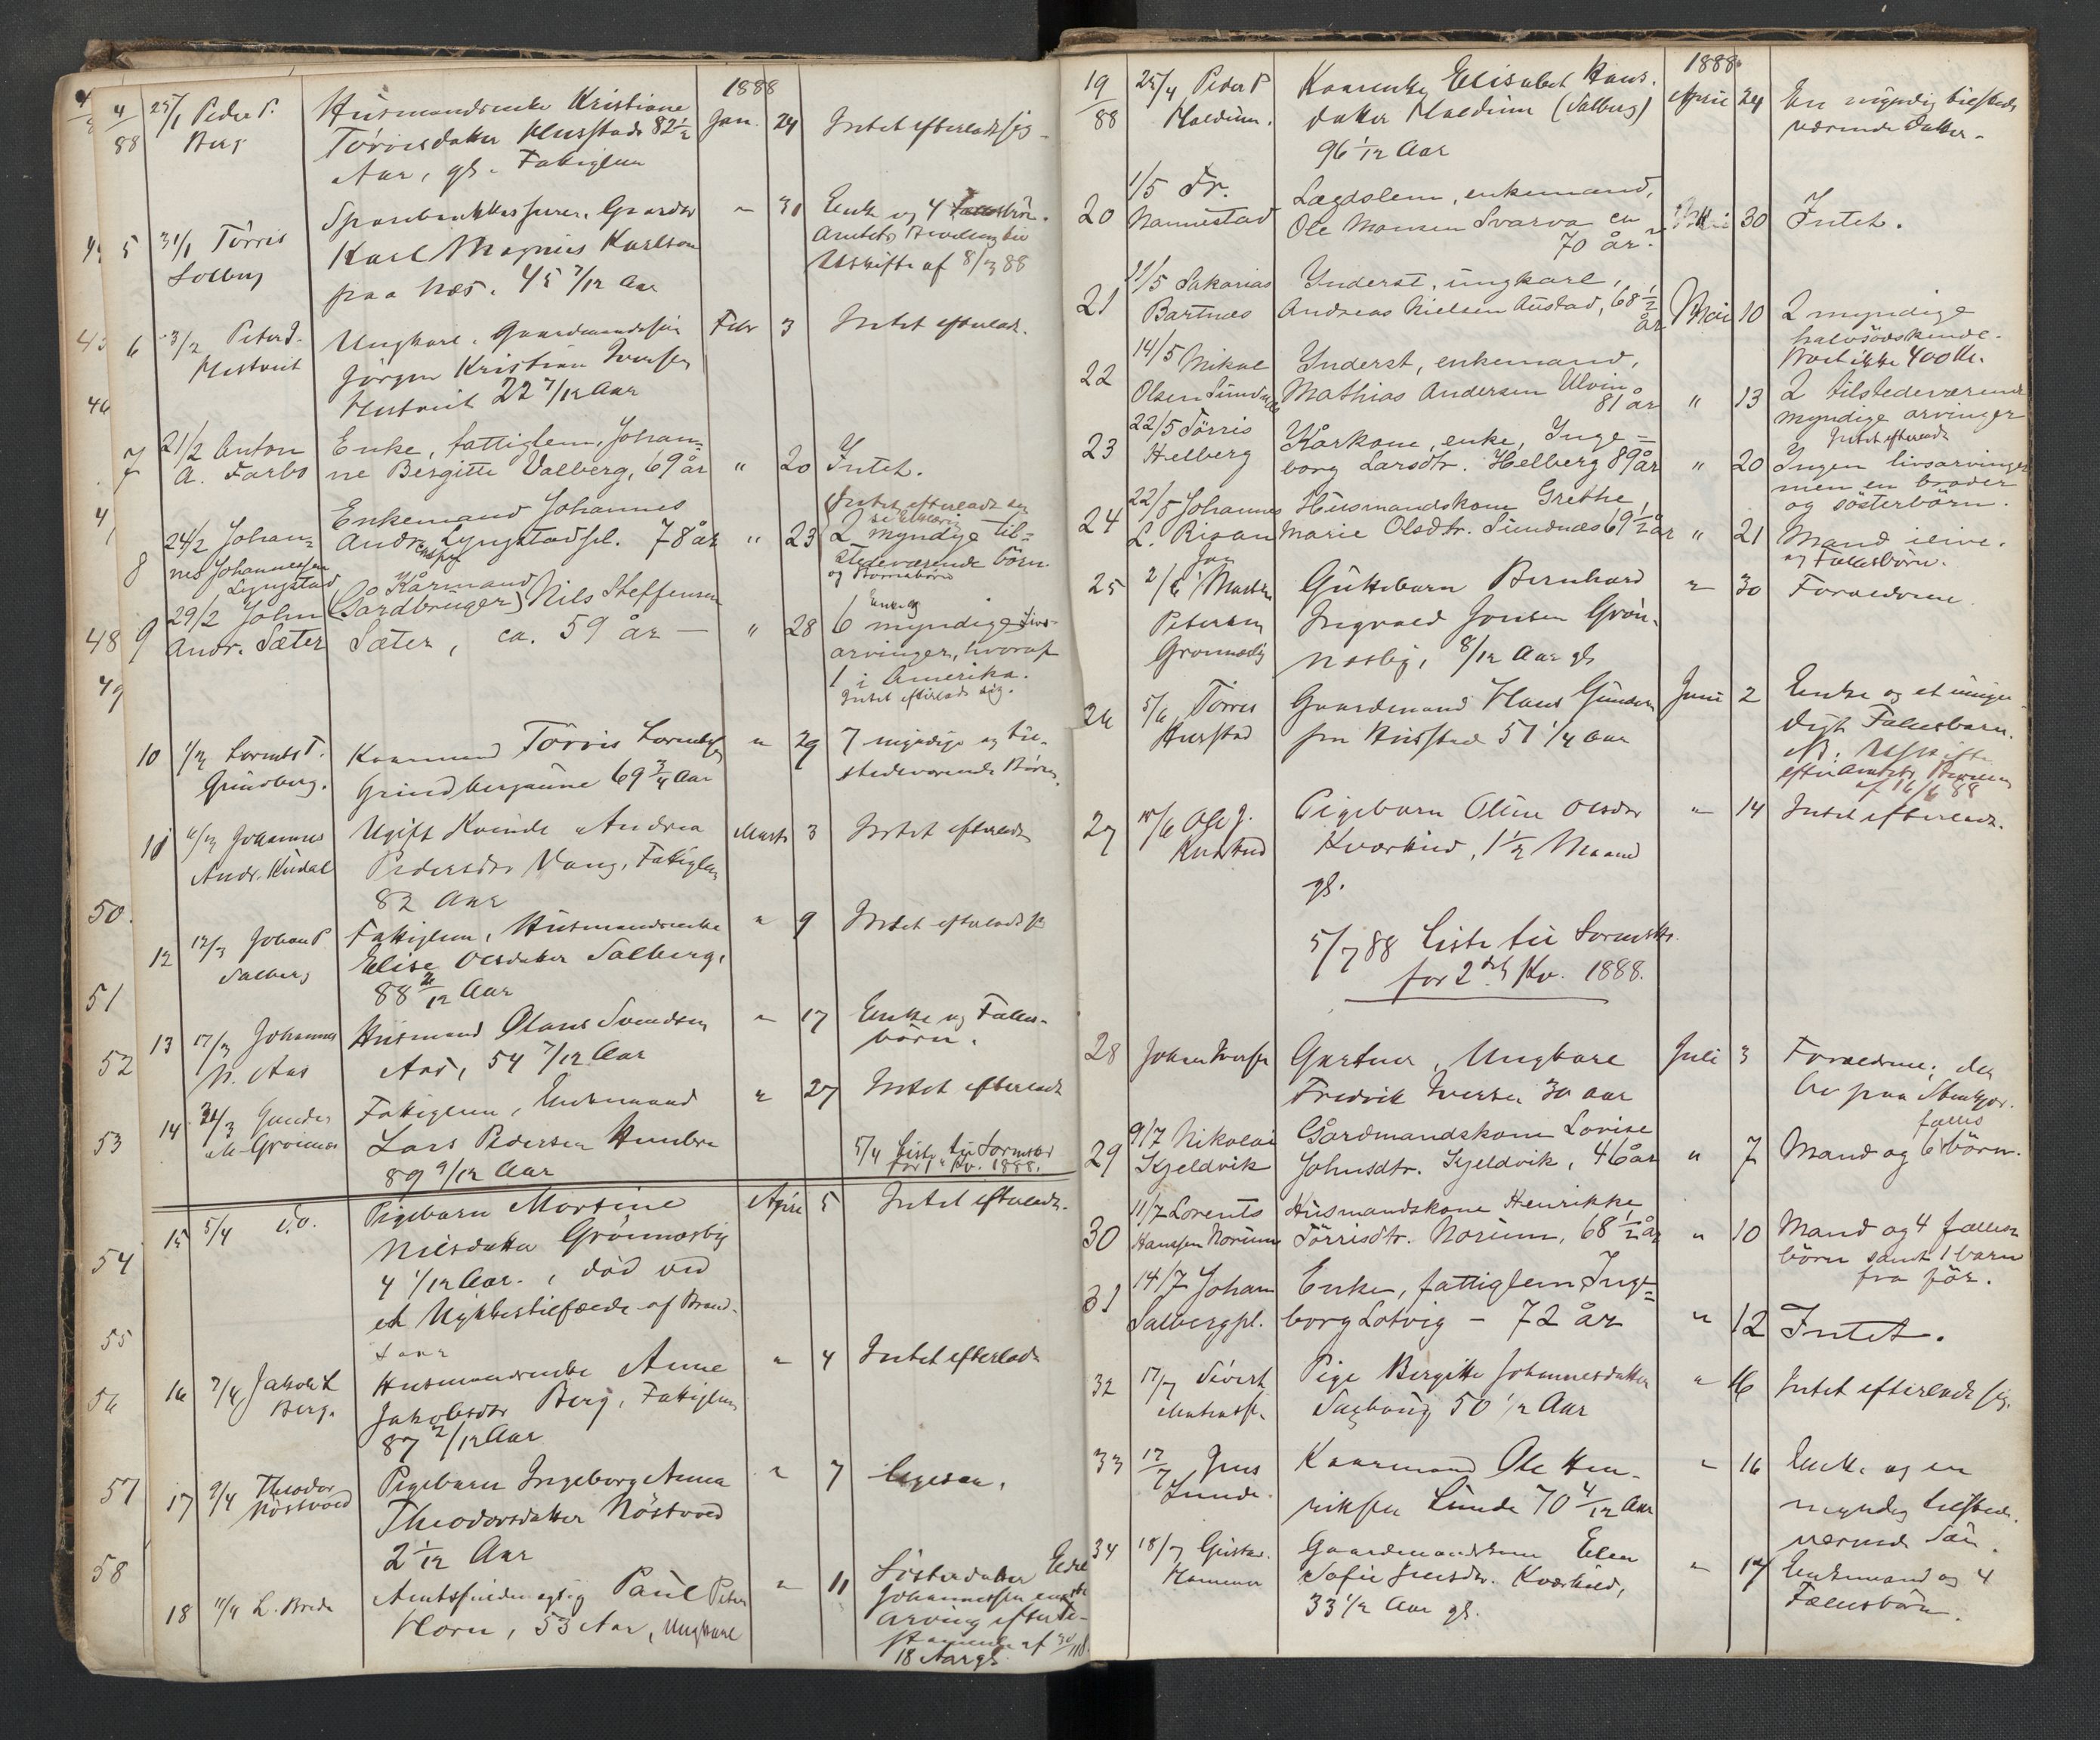 1888
4/88 25/1 Peder P. Berg
Husmandsenke Kristiane
Törrisdatter Husstad 82 1/2
Aar, gl. Fattiglem
Jan. 24 Intet efterladt sig
5 31/1 Törris Solberg
Sparebankkasserer, Gaardbr
Karl Magnus Karlson
paa Næs. 45 7/12 Aar
" 31 Enke og 4 Fællesbörn.
Amtets Bevilling til
Uskifte af 8/3 88
6 3/2 Peter J. Hustvit
Ungkarl, Gaardmandssön
Jörgen Kristian Iversen
Hustvit 22 7/12 Aar
Febr 3 Intet efterladt.
7 21/2 Anton A. Farbo
Enke, fattiglem, Johan=
ne Bergitte Valberg, 69 år
" 20 Intet.
8 24/2 Johan=
nes Johannessen
Lyngstad
Enkemand Johannes
Andr. Lyngstadpl. 78 år
" 23 Intet efterladt sig
2 myndige til=
stedeværende börn
og Barnebörn
9 29/2 John Andr. Sæter
Kårmand
(Gårdbruger) Nils Steffensen
Sæter, ca. 59 år —
" 28 Enke og
6 myndige livs-
arvinger, hvoraf
1 i Amerika.
Intet efterladt sig.
10 1/3 Lornts T. Grindberg.
Kaarmand Törris Lorntsen
Grindbergaune 69 3/4 Aar
" 29 7 myndige og til-
stedeværende Börn
11 6/3 Johannes Andr. Kudal
Ugift Kvinde Andrea
Pedersdtr Vang, Fattiglem
82 Aar
Marts 3 Intet efterladt
12 12/3 Johan P. Salberg
Fattiglem, Husmandsenke
Elise Olsdatter Salberg,
88 2/12 Aar
" 9 Intet efterladt sig
13 17/3 Johannes N. Aas
Husmand Olaus Svendsen
Aas, 54 7/12 Aar
" 17 Enke og Fælles-
börn.
14 31/3 Gunder M. Grönnes
Fattiglem, Enkemand
Lars Pedersen Humbre
89 9/12 Aar
" 27 Intet efterladt
5/4 Liste til Sornskr
for 1ste Kv. 1888.
15 5/4 do.
Pigebarn Martine
Nilsdatter Grönnæsby
4 1/12 Aar., död ved
et Ulykkestilfælde af Brand-
saar
April 5 Intet efterladt.
16 7/4 Jakob L. Berg.
Husmandsenke Anne
Jakobsdtr Berg, Fattiglem
87 2/12 Aar
" 4 Intet efterladt
17 9/4 Theodor Nöstvold
Pigebarn Ingeborg Anna
Theodorsdatter Nöstvold
2 1/12 Aar
" 7 Ligesaa.
18 11/4 L. Brede
Amtsfuldmægtig Paul Peter
Horn, 53 Aar, Ungkarl
" 11 Sösterdatter
Johannessen eneste
Arving efter Te-
stamente af
18 Aar gl.
48
49
50.
51
52
53
54
55
56
57
58
1888
19/88 25/4 Peder P Haldum.
Kaarenke Elisabet Hans-
datter Haldum (Salberg)
96 1/12 Aar
April 24 En myndig tilstede
værende Datter.
20 1/5 Fr. Nannestad
Lægdslem, enkemand,
Ole Monsen Svarva ca
70 år?
30 Intet.
21 11/5 Sakarias Bartnes
Inderst, ungkarl,
Andreas Nielsen Austad, 68 1/2
år
Mai 10 2 myndige
halvsödskende.
Boet ikke 400 Kr.
22 14/5 Mikal Olsen Sundnes
Inderst, enkemand,
Mathias Andersen Ulvin
81 år
" 13 2 tilstedeværende
myndige arvinger
Intet efterladt
23 22/5 Törris Helberg
Kårkone, enke, Inge=
borg Larsdtr. Helberg 89 år
" 20 Ingen livsarvinger
men en broder
og sösterbörn.
24 22/5 Johannes L. Risan
Husmandskone Grethe
Marie Olsdtr. Sundnes 69 1/2 år
" 21 Mand ilive.
og Fællesbörn.
25 2/6 Martin
Petersen
Grönnesby
Guttebarn Bernhard
Ingvald Jonsen Grön-
næsby, 8/12 Aar gl
" 30 Forældrene
26 5/6 Törres Husstad
Gaardmand Hans Gundersen
fra Husstad 51 1/4 Aar
Juni 2 Enke og et umyn-
digt Fællesbarn.
NB. Uskifte
efter Amtets Bevilling
af 16/6 88
27 15/6 Ole J. Kvistad
Pigebarn Oline Olsdtr
Kvarkind, 1 1/2 Maaned
gl.
" 14 Intet efterladt.
5/7 88 Liste til Sornskr.
for 2det Kv. 1888.
28 Johan Iversen
Gartner, Ungkarl
Fredrik Iversen 30 Aar
Juli 3 Forældrene; der
bor paa Stenkjær.
29 9/7 Nikolai Kjeldvik
Gårdmandskone Lovise
Johnsdtr. Kjeldvik, 46 år
" 7 Mand og 6 fælles börn.
30 11/7 Lorents Hanssen Norum
Husmandskone Henrikke
Törrisdtr. Norum, 68 1/2 år
" 10 Mand og 4 fælles
börn samt 1 barn
fra för.
31 14/7 Johan Salbergpl.
Enke, fattiglem Inge=
borg Lotvig — 72 år
" 12 Intet.
32 17/7 Sivert
Pige Birgitte Johannesdatter
Saghaug 50 1/2 Aar
" 16 Intet efterladt sig.
33 17/7 Jens Lunde.
Kaarmand Ole Hen-
riksen Lunde 70 4/12 Aar
" 16 Enke og en
myndig tilstede-
værende Sön.
34 18/7 Gustav Hammer
Gaardmandskone Elen
Sofie Jensdtr. Kvarkind,
33 1/2 Aar gl.
" 17 Enkemand og 4
Fællesbörn.